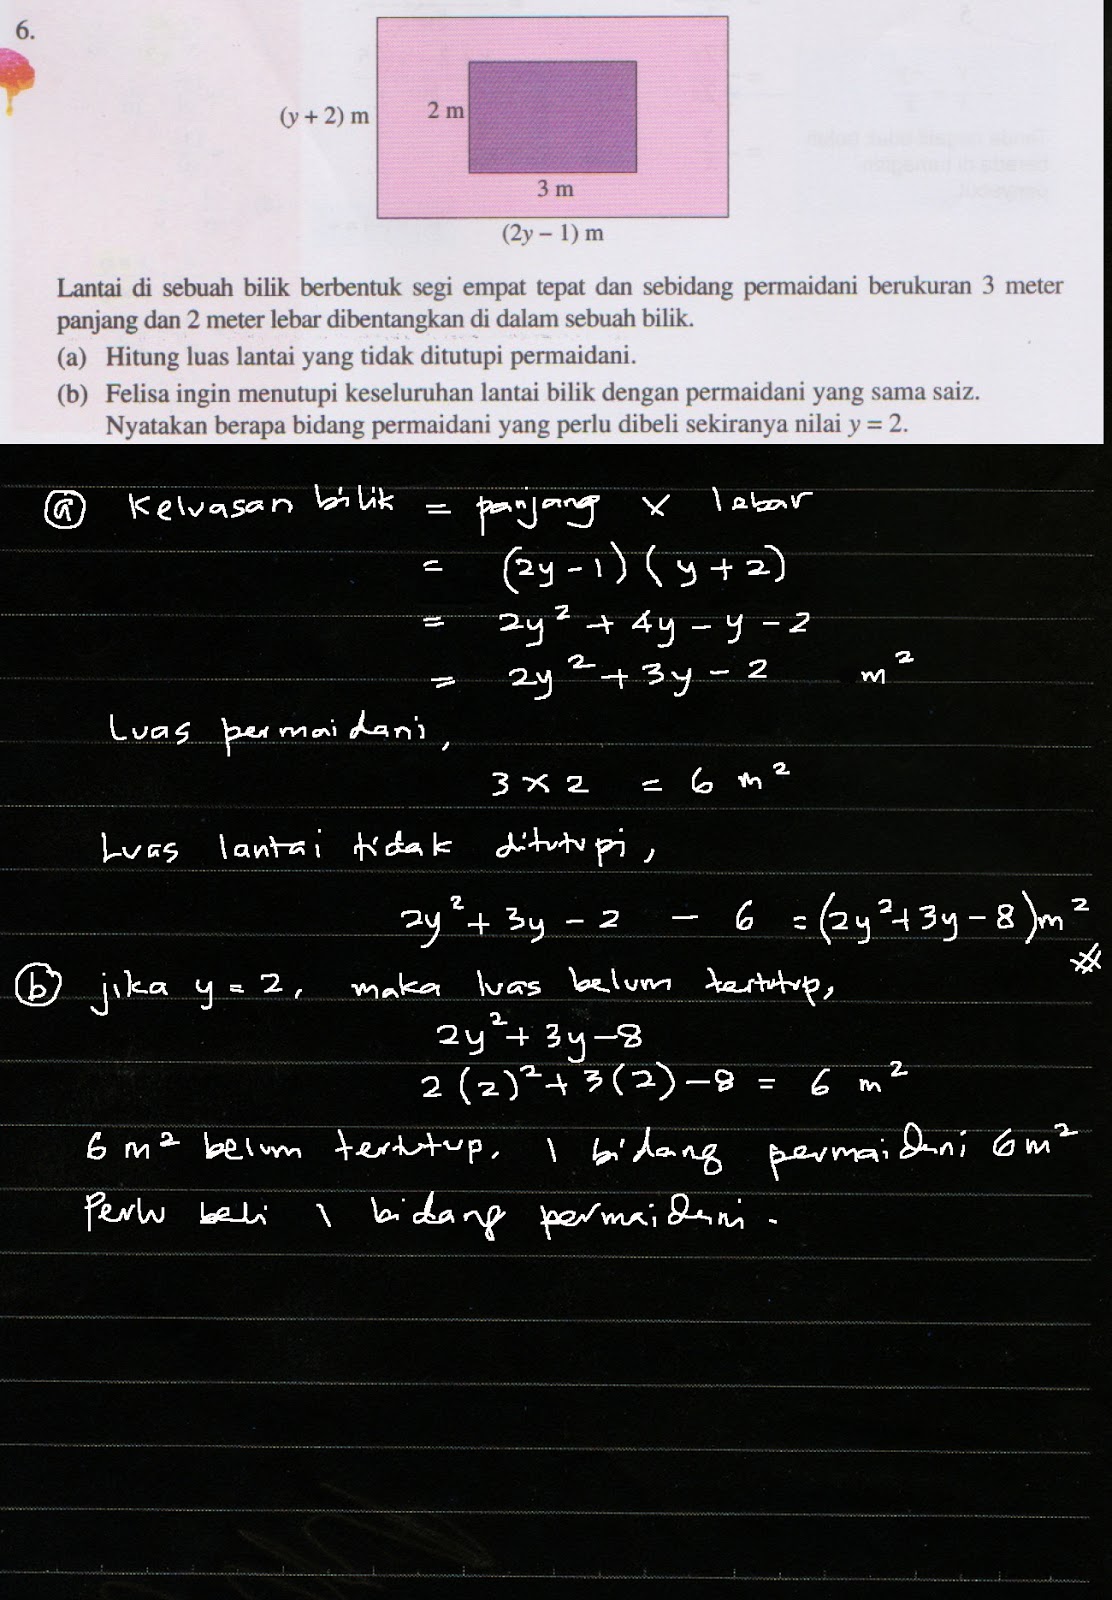 6.
(y + 2) m
2 m
3 m
(2y – 1) m
Lantai di sebuah bilik berbentuk segi empat tepat dan sebidang permaidani berukuran 3 meter
panjang dan 2 meter lebar dibentangkan di dalam sebuah bilik.
(a) Hitung luas lantai yang tidak ditutupi permaidani.
(b) Felisa ingin menutupi keseluruhan lantai bilik dengan permaidani yang sama saiz.
Nyatakan berapa bidang permaidani yang perlu dibeli sekiranya nilai y = 2.
(a) Keluasan bilik = panjang × lebar
= (2y – 1) (y + 2)
= 2y² + 4y – y – 2
= 2y² + 3y – 2 m²
Luas permaidani,
3 × 2 = 6 m²
Luas lantai tidak ditutupi,
2y² + 3y – 2 – 6 = (2y² + 3y – 8) m²
(b) jika y = 2, maka luas belum tertutup,
2y² + 3y – 8
2 (2)² + 3 (2) – 8 = 6 m²
6 m² belum tertutup. 1 bidang permaidani 6 m²
Perlu beli 1 bidang permaidani.